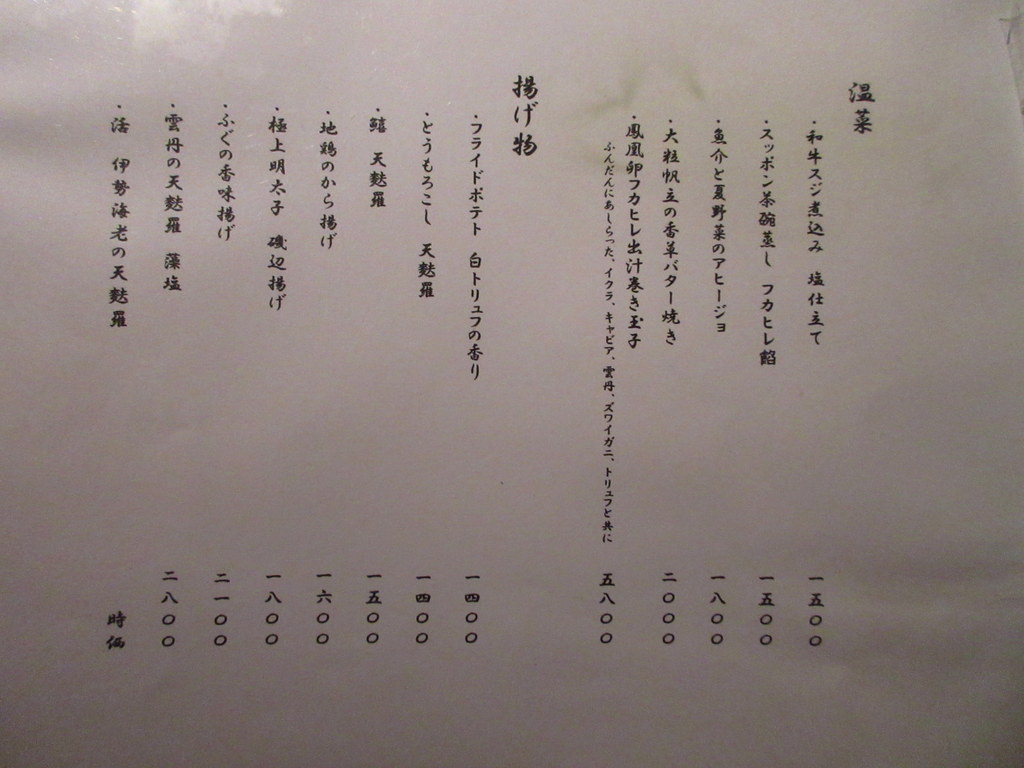 温菜
・和牛スジ煮込み 塩仕立て 一五〇〇
・スッポン茶碗蒸し フカヒレ餡 一五〇〇
・魚介と夏野菜のアヒージョ 一八〇〇
・大粒帆立の香草バター焼き 二〇〇〇
・鳳凰卵フカヒレ出汁巻き玉子
ふんだんにあしらった、イクラ、キャビア、雲丹、ズワイガニ、トリュフと共に 五八〇〇
揚げ物
・フライドポテト 白トリュフの香り 一四〇〇
・とうもろこし 天麩羅 一四〇〇
・鱚 天麩羅 一五〇〇
・地鶏のから揚げ 一六〇〇
・極上明太子 磯辺揚げ 一八〇〇
・ふぐの香味揚げ 二一〇〇
・雲丹の天麩羅 藻塩 二八〇〇
・活 伊勢海老の天麩羅 時価